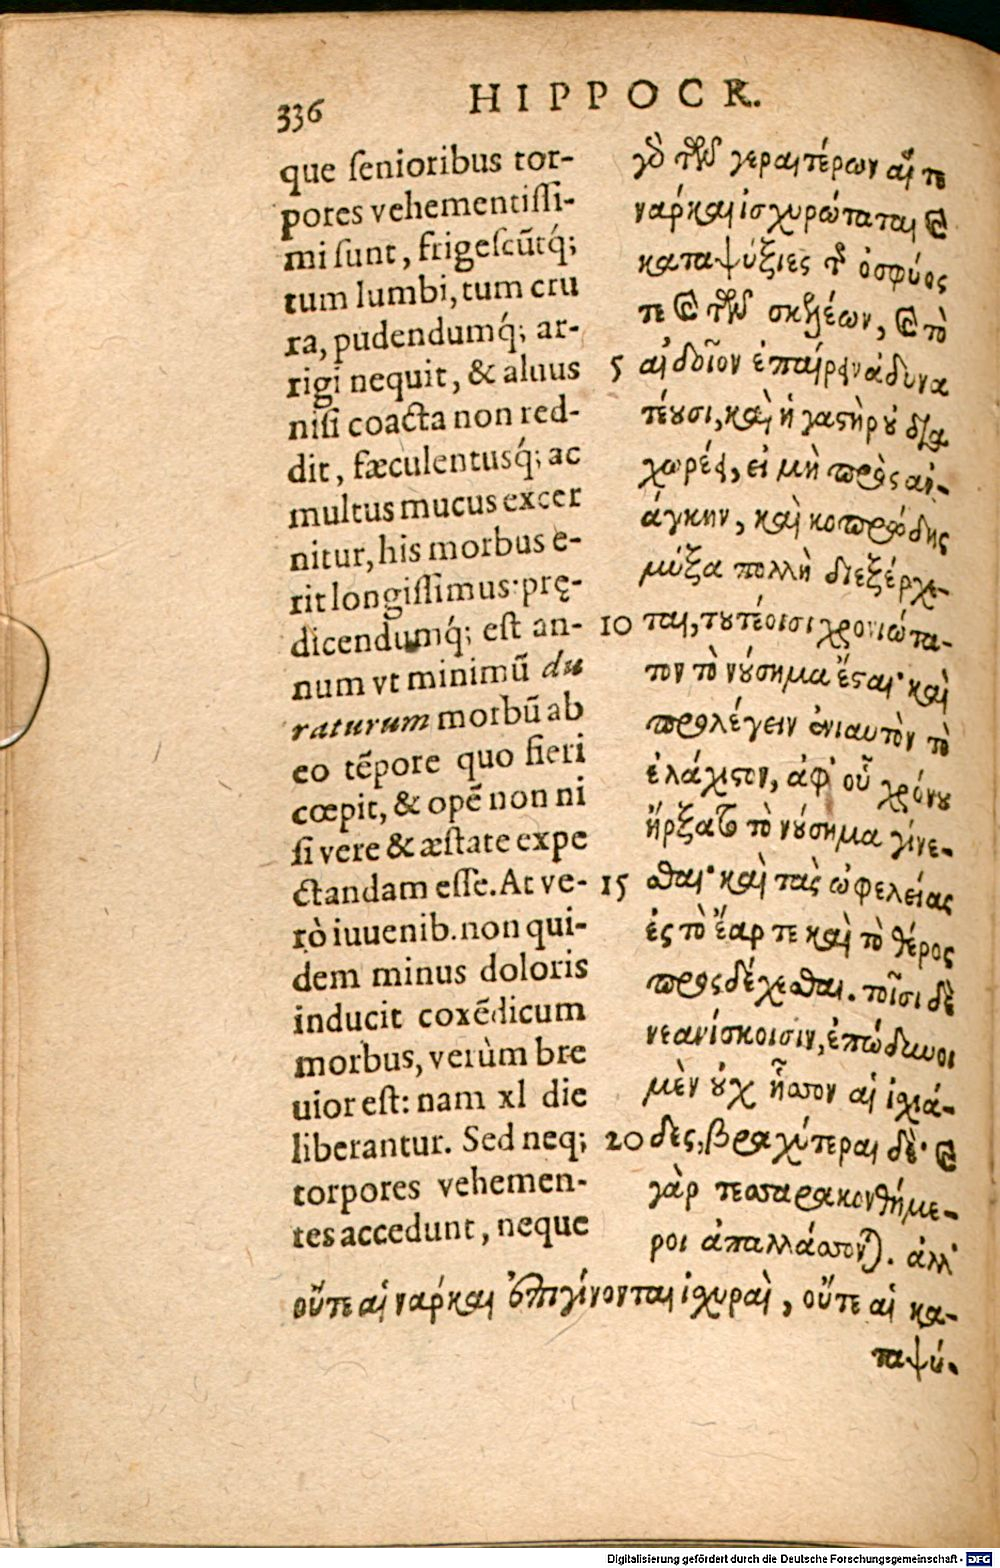 336
HIPPOCR.
que ſenioribus tor-
pores vehementiſſi-
mi ſunt, frigeſcūtq́;
tum lumbi, tum cru
ra, pudendumq́; ar-
rigi nequit, & aluus
niſi coacta non red-
dit, fæculentusq́; ac
multus mucus excer
nitur, his morbus e-
rit longiſſimus: prę-
dicendumq́; eſt an-
num vt minimū du
raturum morbū ab
eo tēpore quo fieri
cœpit, & opē non ni
ſi vere & æſtate expe
ctandam eſſe. At ve-
rò iuuenib. non qui-
dem minus doloris
inducit coxēdicum
morbus, verùm bre
uior eſt: nam xl die
liberantur. Sed neq;
torpores vehemen-
tes accedunt, neque
γὸ τῶν γεραιτέρων αἵ τε
ναρκαι ἰσχυρώταται καὶ
καταψύξιες τῆς ὀσφύος
τε καὶ τῶν σκελέων, καὶ τὸ
5 αἰδοῖον ἐπαίρειν ἀδυνα
τέουσι, καὶ ἡ γαστὴρ οὐ δια
χωρέει, εἰ μὴ πρὸς αν-
άγκην, καὶ κοπρώδης
μύξα πολλὴ διεξέρχε-
10 ται, τουτέοισι χρονιώτα-
τον τὸ νούσημα ἔσται· καὶ
προλέγειν ἐνιαυτὸν τὸ
ἐλάχιστον, ἀφ' οὗ χρόνου
ἤρξατο τὸ νούσημα γίνε-
15 σθαι· καὶ τὰς ὠφελείας
ἐς τὸ ἔαρ τε καὶ τὸ θέρος
προςδέχεσθαι. τοῖσι δὲ
νεανίσκοισιν, ἐπώδυνοι
μὲν οὐχ ἧσσον αἱ ἰσχιά-
20 δες, βραχύτεραι δέ· καὶ
γὰρ τεσσαρακονθήμε-
ροι ἀπαλλάσσονται. ἀλλ'
οὔτε αἱ ναρκαι ἐπιγίνονται ἰσχυραὶ, οὔτε αἱ κα-
ταψύ-
Digitalisierung gefördert durch die Deutsche Forschungsgemeinschaft - DFG